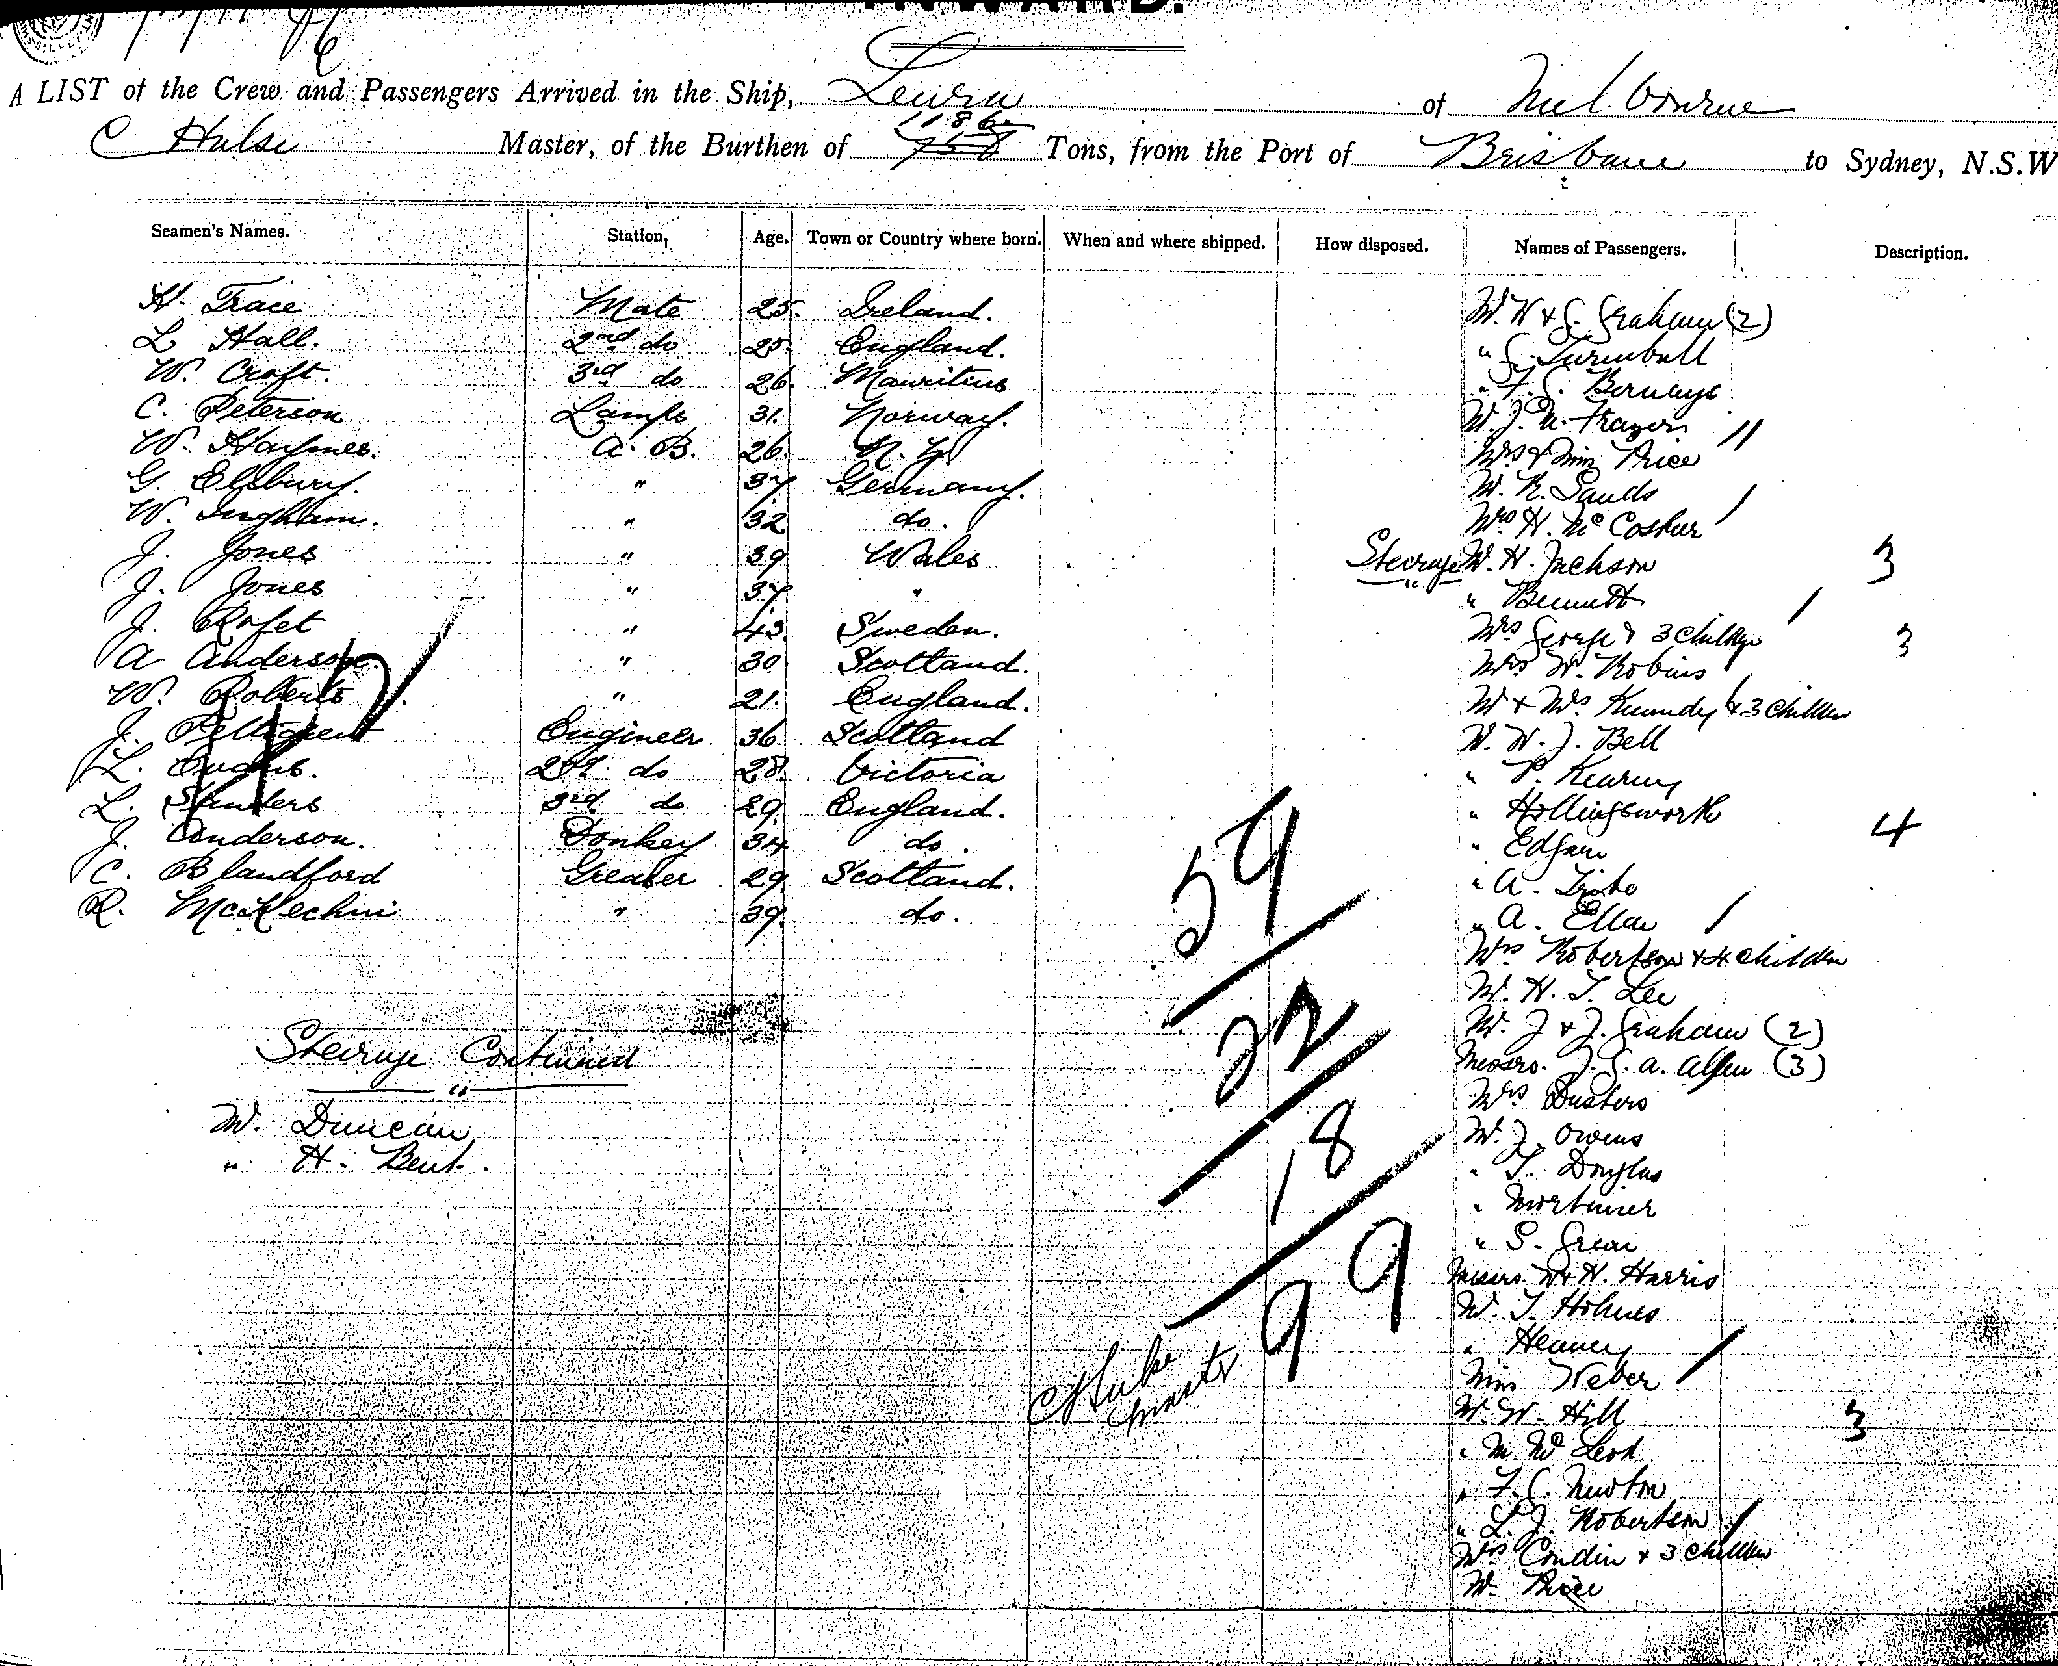 INWARD.
A LIST of the Crew and Passengers Arrived in the Ship, Leura of Melbourne
C Hulse Master, of the Burthen of 1186 758 Tons, from the Port of Brisbane to Sydney, N.S.W
Seamen's Names. Station, Age. Town or Country where born. When and where shipped. How disposed. Names of Passengers. Description.
H. Trace Mate 25. Ireland. Mr. W & G. Graham (2)
L Hall. 2nd do 25. England. " G. Turnbull
W. Croft. 3rd do 26. Mauritius " F. G. Bernays
C. Peterson Lamps 31. Norway. Mr. J. Frazer
W. Haymes. A. B. 26. N. Z. Mrs & Miss Price
G. Elsbury. " 37 Germany. Mr. R. Sands
W. Ingham. " 32 do. Mrs H. McCosker
J. Jones " 39 Wales Steerage Mr. H. Jackson 3
J. Jones " 37. " " Bennett
J. " 43. Sweden. Mrs George & 3 children 3
A Anderson. " 30 Scotland. Mrs W. Robins
W. Roberts " 21. England. Mr & Mrs Kennedy & 3 children
J. Engineer 36 Scotland Mr. W. J. Bell
L. 2nd do 28. Victoria " P. Kearny
L. Sanders 3rd do 29. England. " Hollingsworth
J. Anderson. Donkey 34 do. " Edgar 4
C. Blandford Greaser 29 Scotland. " A.
R. McKechni " 39. do. " A. Ellan
Mrs Robertson & 4 children
Mr. H. T. Lee
Mr. J & J. Graham (2)
Messrs. J. G. A. Allen (3)
Mrs Dusters
Mr. J. Owens
" T. Douglas
" Mortimer
" S.
Messrs. W & H. Harris
Mr. T. Holmes
" Heaney
Miss Weber
Mr. W. Hill 3
" M McLeod
" F. C. Newton
" L. J. Robertson
Mrs Condin & 3 children
Mr. Price
Steerage Continued
Mr. Duncan
" H. Bent.
59
22
18
99
C Hulse
master